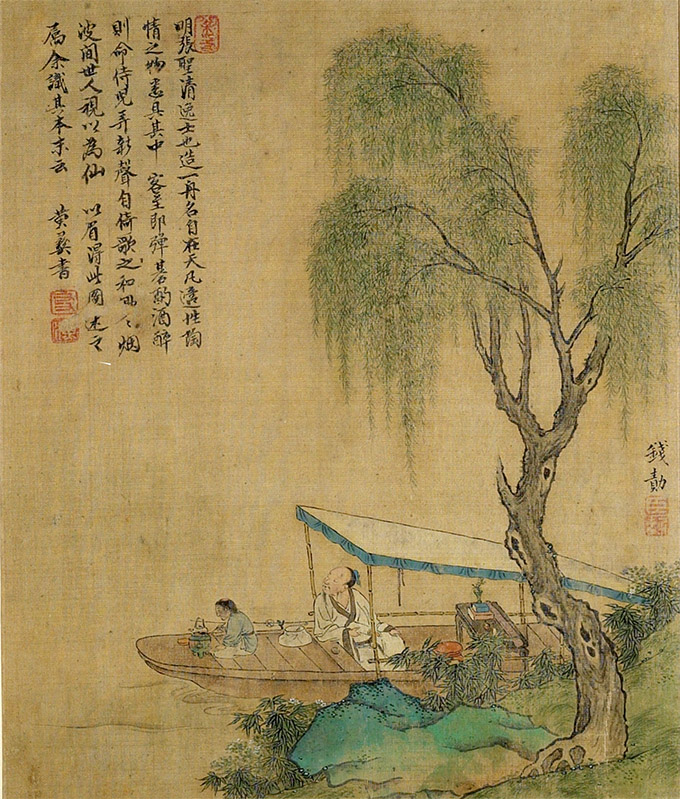 明張聖清逸士也造一舟名自在天凡適性陶
情之物悉具其中 客至即彈碁酌酒醉
則命侍兒弄新聲自倚歌之和嗚〻烟
波間世人視以為仙 以眉得此圖述之
屬余識其本末云 黃彝書
錢勣